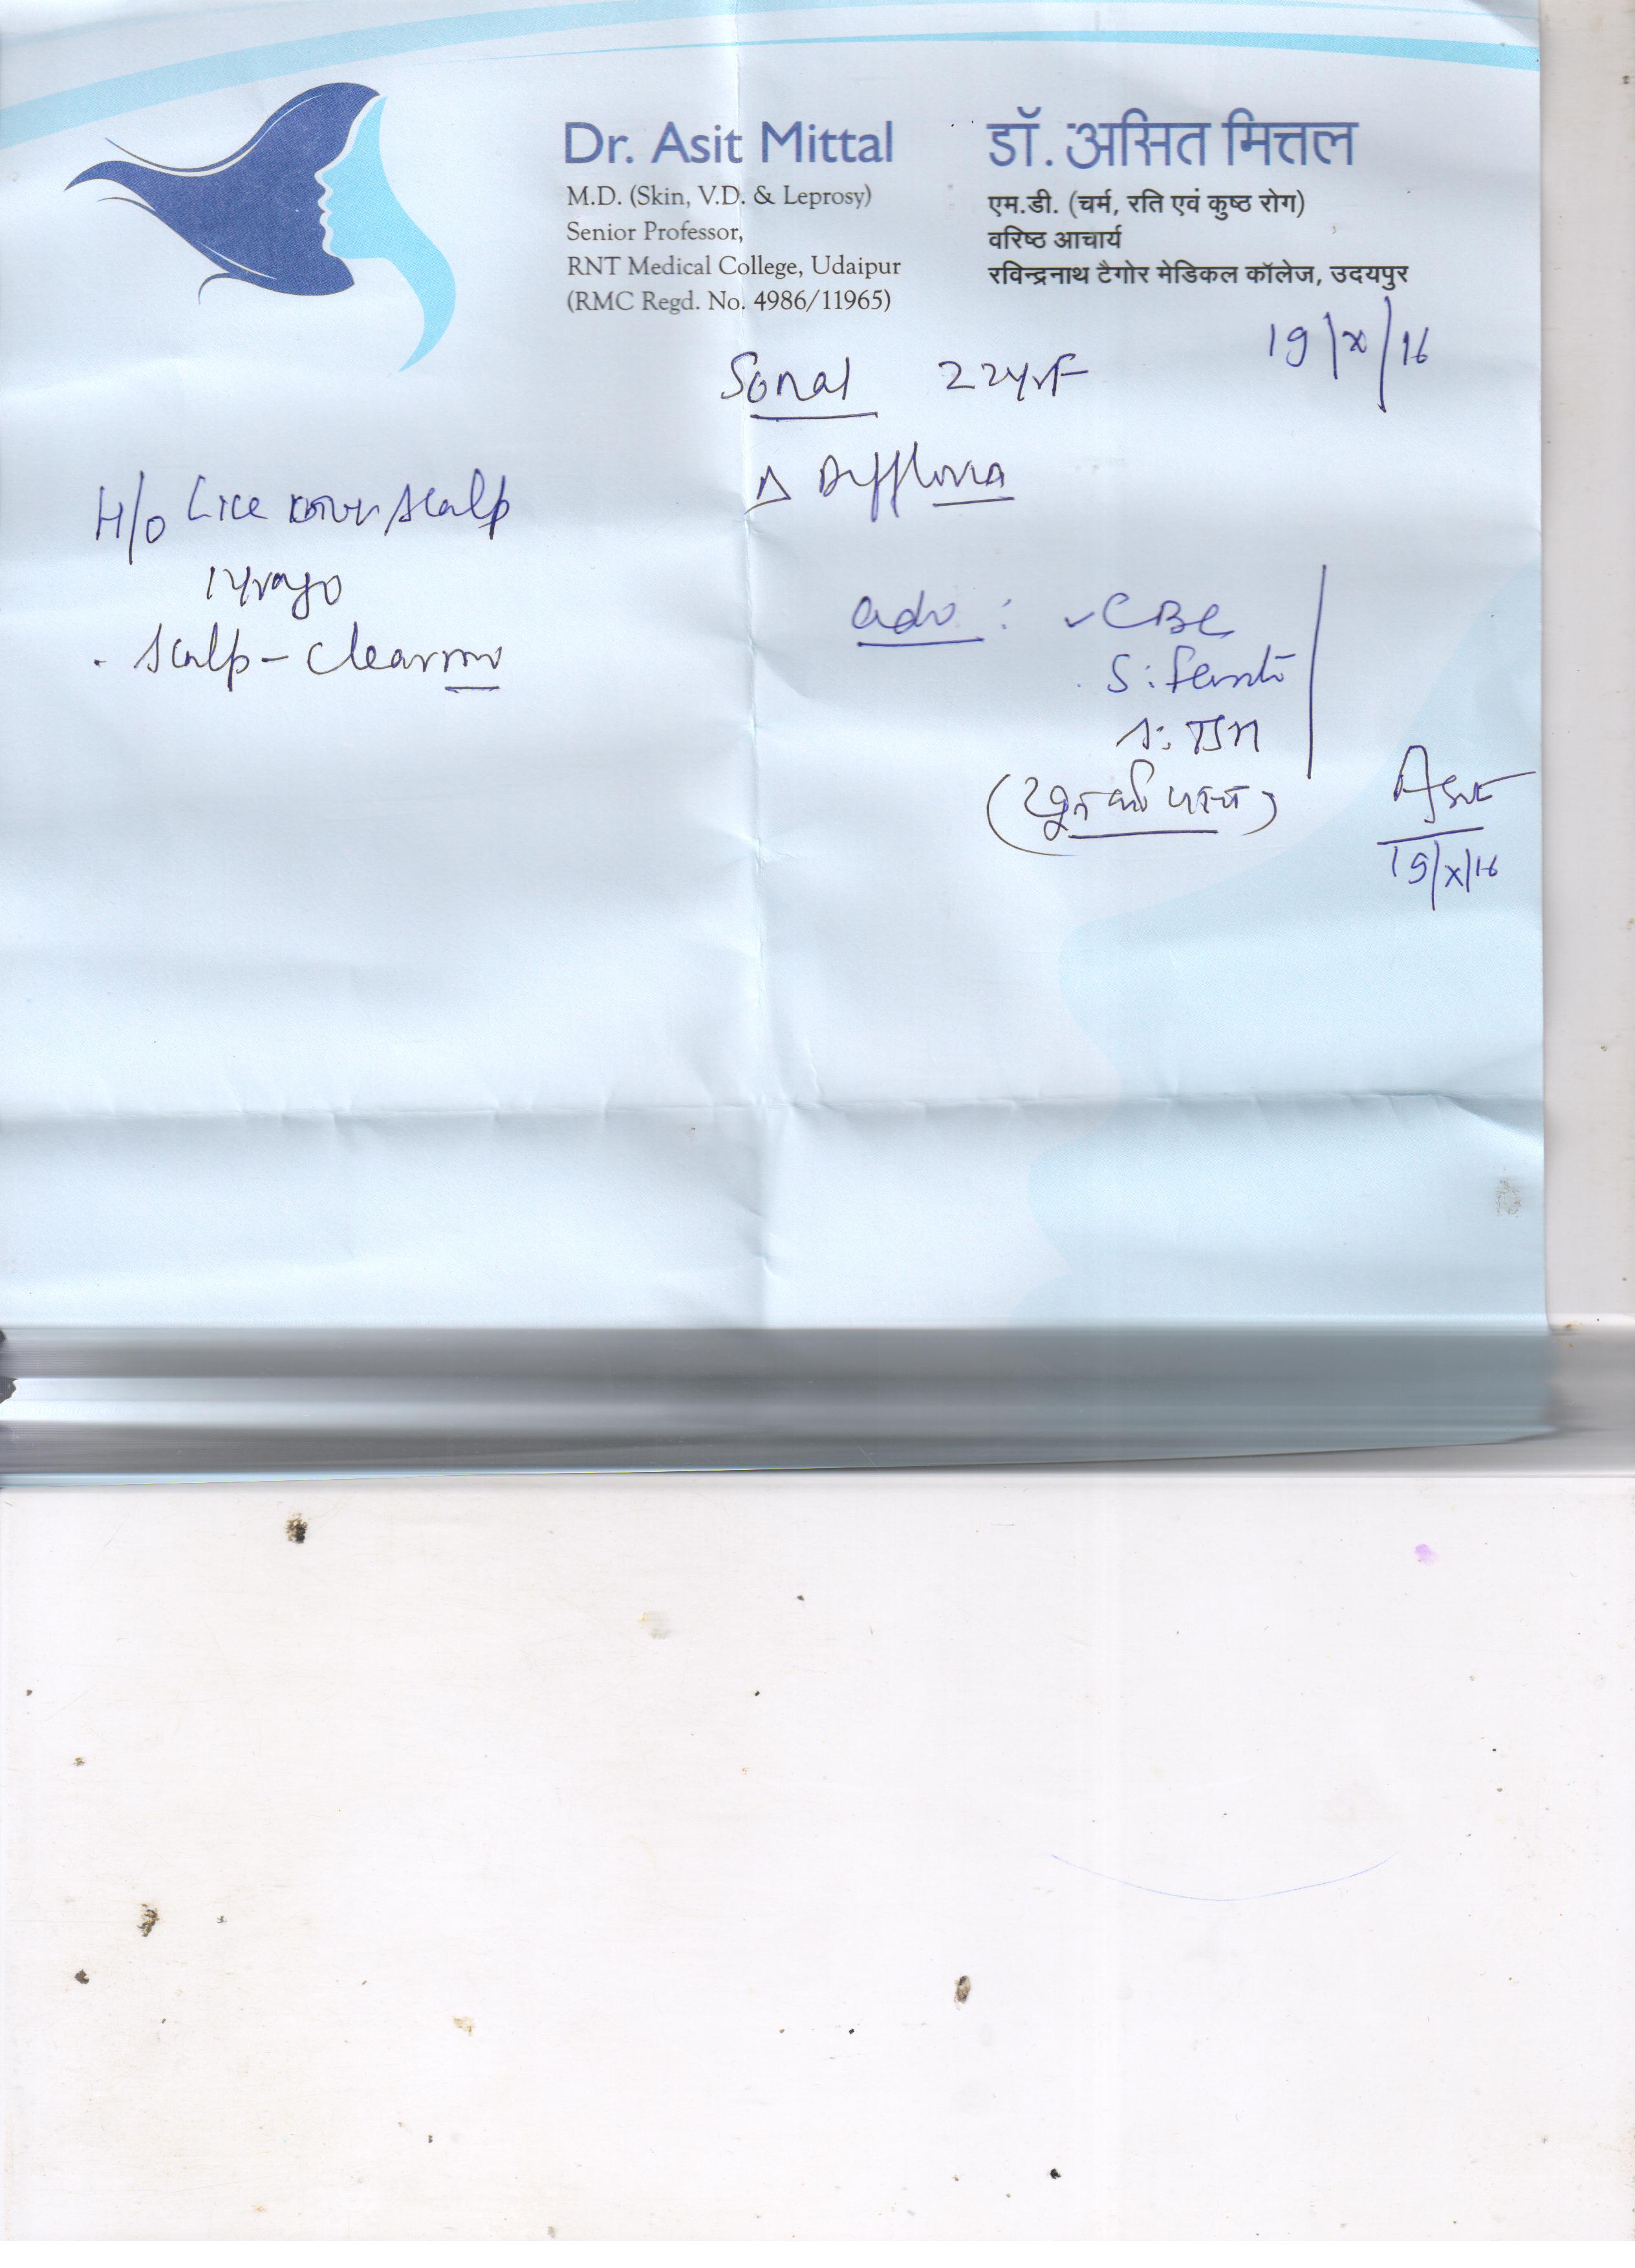 Dr. Asit Mittal
M.D. (Skin, V.D. & Leprosy)
Senior Professor,
RNT Medical College, Udaipur
(RMC Regd. No. 4986/11965)
डॉ. असित मित्तल
एम.डी. (चर्म, रति एवं कुष्ठ रोग)
वरिष्ठ आचार्य
रविन्द्रनाथ टैगोर मेडिकल कॉलेज, उदयपुर
19/x/16
Sonal 22yrF
Δ Diff
H/o Lice over scalp
1yr ago
. Scalp - Clear
adv : ✓CBC
S. Ferritin
S. TSH
(खून की जांच)
Asit
19/x/16